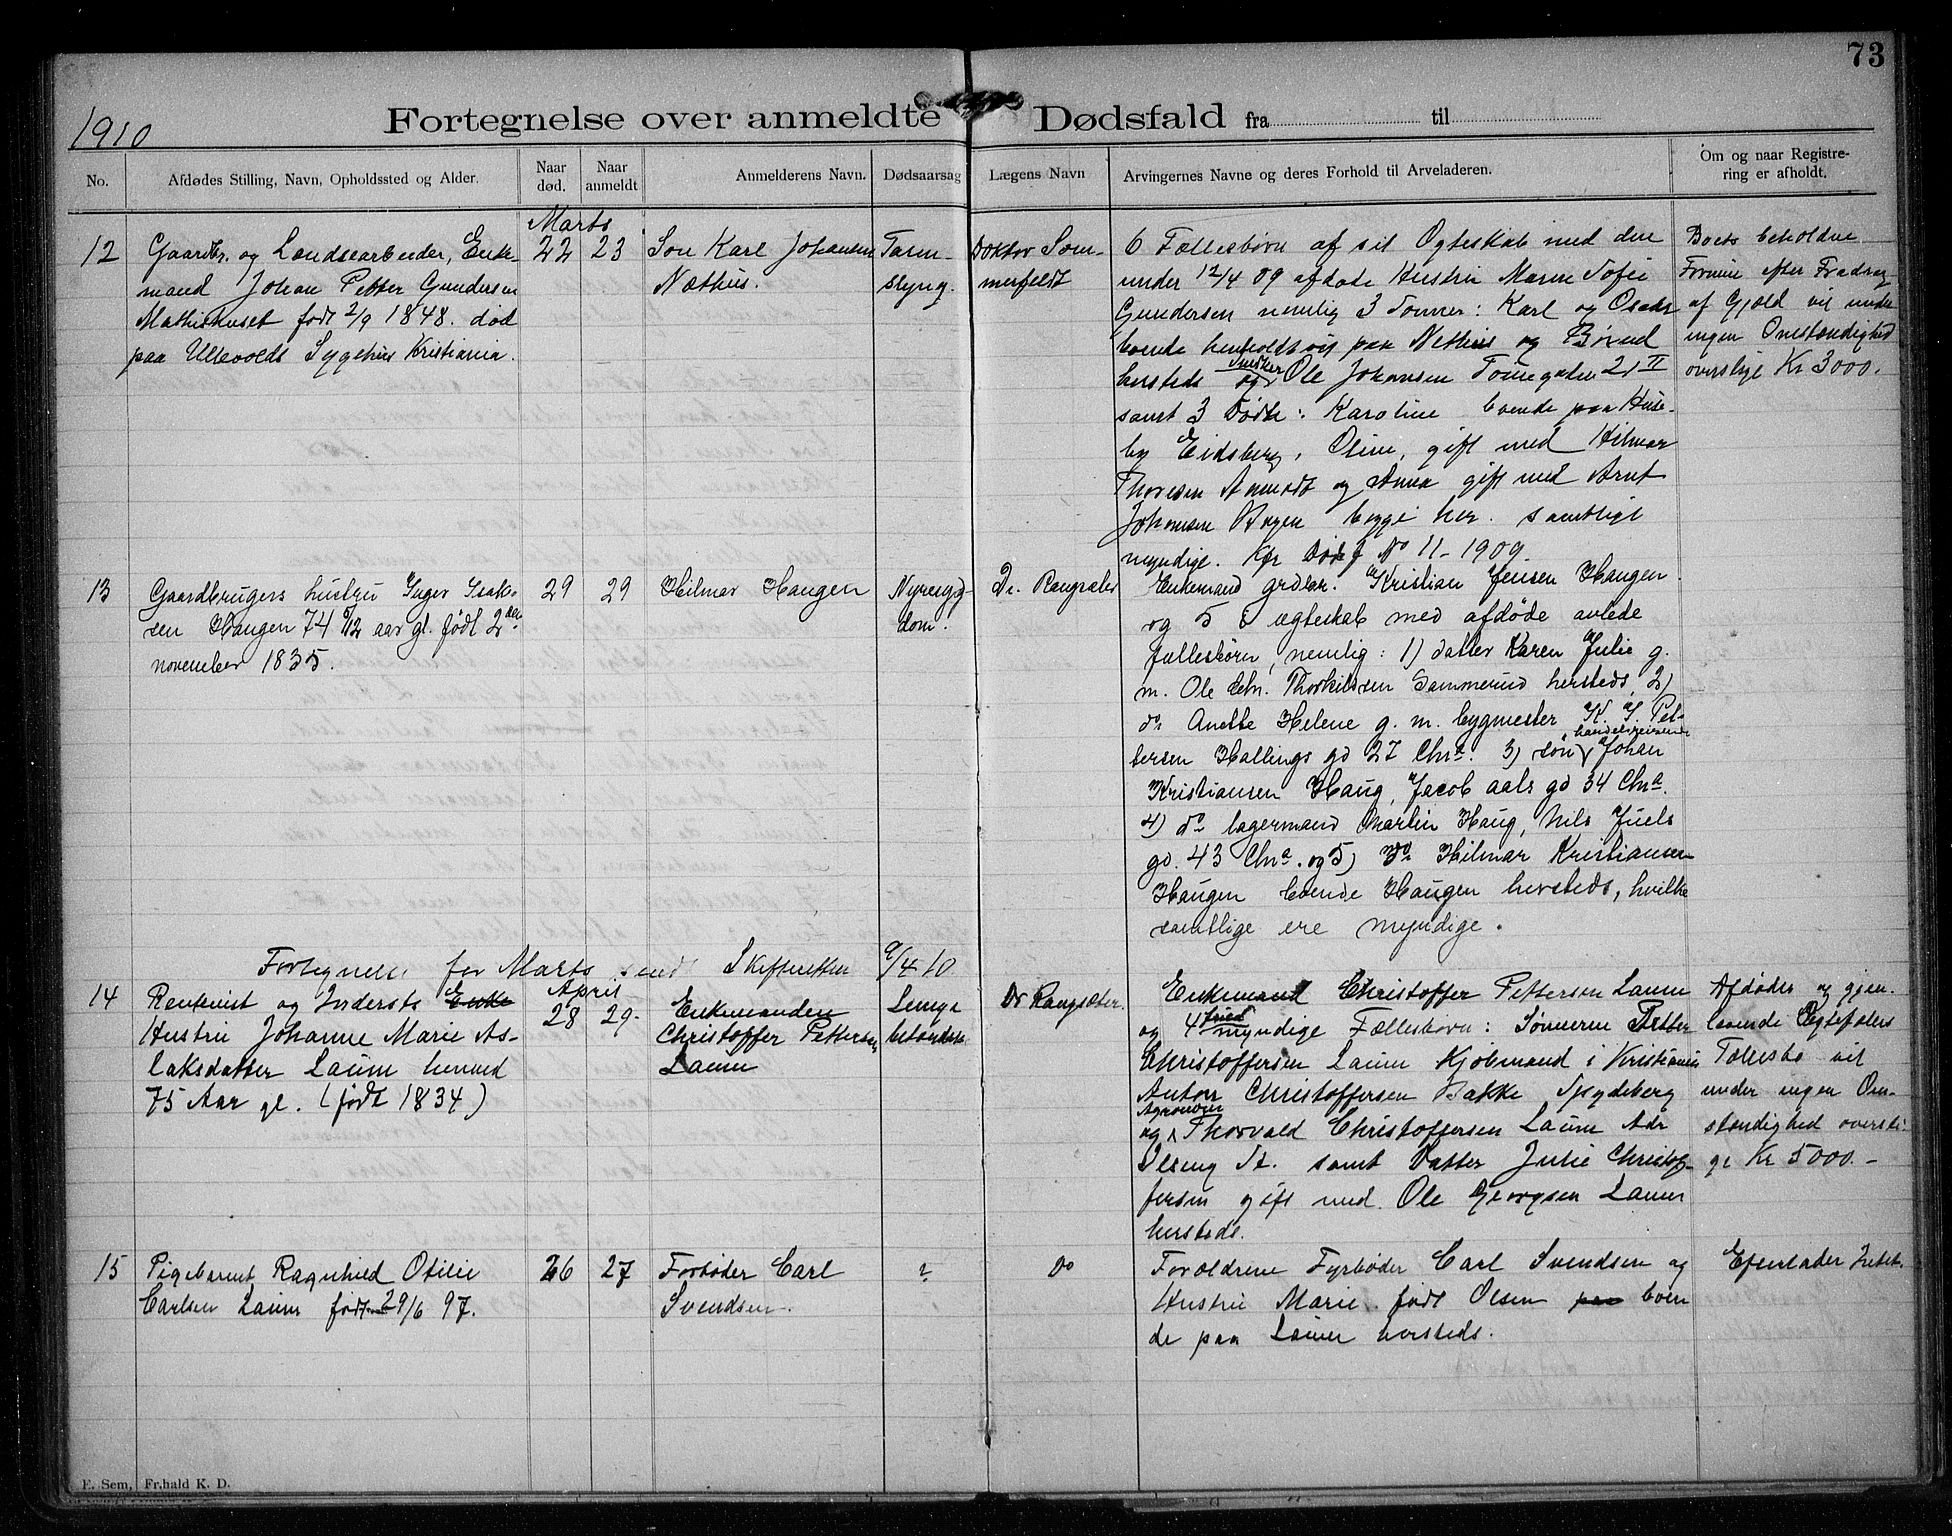 73
1910
Fortegnelse over anmeldte Dødsfald fra til
No.
Afdødes Stilling, Navn, Opholdssted og Alder.
Naar død.
Naar anmeldt
Anmelderens Navn.
Dødsaarsag
Lægens Navn
Arvingernes Navne og deres Forhold til Arveladeren.
Om og naar Registre-
ring er afholdt.
Marts
12
Gaardbr. og Landsearbeider, Enke-
mand Johan Petter Gundersen
Mathishuset født 2/9 1848. død
paa Ullevolds Sygehus Kristiania.
22
23
Søn Karl Johansen
Næthus.
Tarm-
slyng.
Doktor Som-
merfeldt
6 Fællesbørn af sit Ægteskab med den
under 12/4 09 afdøde Hustru Maren Sofie
Gundersen nemlig 3 Sønner: Karl og Oskar
boende henholdsvis paa Næthus og
hersteds og Snedker Ole Johansen 21 II
samt 3 Døtre: Karoline boende paa Huse-
by Eidsberg, Oline, gift med Hilmar
Thoresen og Anna gift med Arnt
Johansen Hagen begge her. samtlige
myndige. Kfr Dødsf No 11-1909.
Boets beholdne
Formue efter Fradrag
af Gjæld vil under
ingen Omstændighed
overstige Kr 3000.
13
Gaardbrugers hustru Inger Isak-
sen Haugen 74 5/12 aar gl. født 2den
november 1835.
29
29
Hilmar Haugen
Nyresyg-
dom.
Dr. Rangsæter
Enkemand grdbr. Kristian Jensen Haugen
og 5 i ægteskab med afdøde avlede
fællesbørn, nemlig: 1) datter Karen Julie g.
m. Ole Chr. Thorkilsen Sammerud hersteds, 2)
do Anette Helene g. m. bygmester K. J. Pet-
tersen Hallings gd 27 Chra. 3) søn, handelsreisende Johan
Kristiansen Haug, Jacob aals gd 34 Chra.
4) do lagermand Martin Haug, Nils Juels
gd. 43 Chra. og 5) do Hilmar Kristiansen
Haugen boende Haugen hersteds, hvilke
samtlige ere myndige.
Fortegnelse for Marts sendt Skifteretten 9/4 10
April
14
Rentenist og Indersts Enke
Hustru Johanne Marie As-
laksdatter Laum herved
75 Aar gl. (født 1834)
28
29
Enkemanden
Christoffer Pettersen
Laum
Lunge
betændelse
Dr Rangsæter.
Enkemand Christoffer Pettersen Laum
og 4 myndige Fællesbørn: Sønnerne Petter
Christoffersen Laum Kjøbmand i Kristiania
Anton Christoffersen Bakke Spydeberg
og Agronom Thorvald Christoffersen Laum Adr
St. samt Datter Julie Christof-
fersen gift med Ole Georgsen Laum
hersteds.
Afdødes og gjen-
levende Ægtefælles
Fællesbo vil
under ingen Om-
stændighed oversti-
ge Kr 5000.-
15
Pigebarnet Ragnhild Otilie
Carlsen Laum født 29/6 97.
26
27
Forbøder Carl
Svendsen.
?
Do
Forældrene Fyrbøder Carl Svendsen og
Hustru Marie født Olsen paa boen
de paa Laum hersteds.
Efterlader Intet.
E. Sem, Fr.hald K. D.